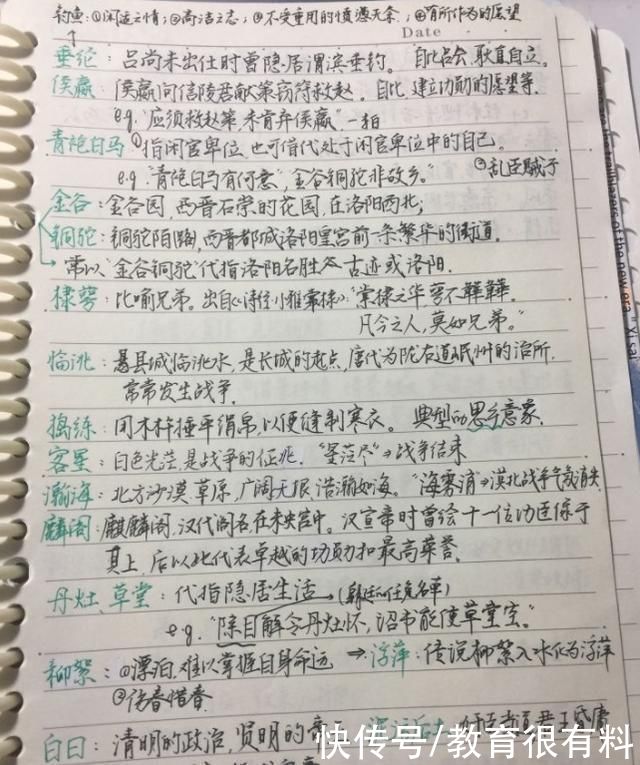 钓鱼:①闲适之情;②高洁之志;③不受重用的愤懑无奈;④有所作为的愿望
Date
垂纶:吕尚未出仕时曾隐居渭滨垂钓。自比吕尚,耿直自立。
侯嬴:侯嬴向信陵君献策窃符救赵。自比,建立功勋的愿望等.
e.g.“应须救赵策,未肯弃侯嬴”
青袍白马①指闲官卑位,也可借代处于闲官卑位中的自己。
②乱臣贼子
e.g.“青袍白马有何意”,金谷铜驼非故乡。”
金谷:金谷园,西晋石崇的花园,在洛阳西北;
铜驼:铜驼陌路,西晋都城洛阳皇宫前一条繁华的街道.
常以“金谷铜驼”代指洛阳名胜古迹或洛阳.
棣萼:比喻兄弟。出自《诗经·小雅·棠棣》“棠棣之华,萼不韡韡.
凡今之人,莫如兄弟。”
临洮:县城临洮水,是长城的起点,唐代为陇右道岷州的治所.
常常发生战争.
捣练:用木杵捶平绢帛,以便缝制寒衣。典型的思乡意象.
客星:白色光芒,是战争的征兆.“芒尽”→战争结束
瀚海:北方沙漠、草原,广阔无垠,浩瀚如海。“海雾消”→漠北战争气氛消失
麟阁:麒麟阁,汉代阁名,在未央宫中。汉宣帝时曾绘十一位功臣像于
其上,后以此代表卓越的功勋和最高荣誉.
丹灶、草堂:代指隐居生活→(朝廷的任免名单)
e.g.“除目解令丹灶怀,诏书能使草堂空。”
柳絮:①漂泊,难以掌握自身命运→浮萍:传说柳絮入水化为浮萍
②伤春惜春
白日:清明的政治,贤明的帝王
快传号/教育很有料